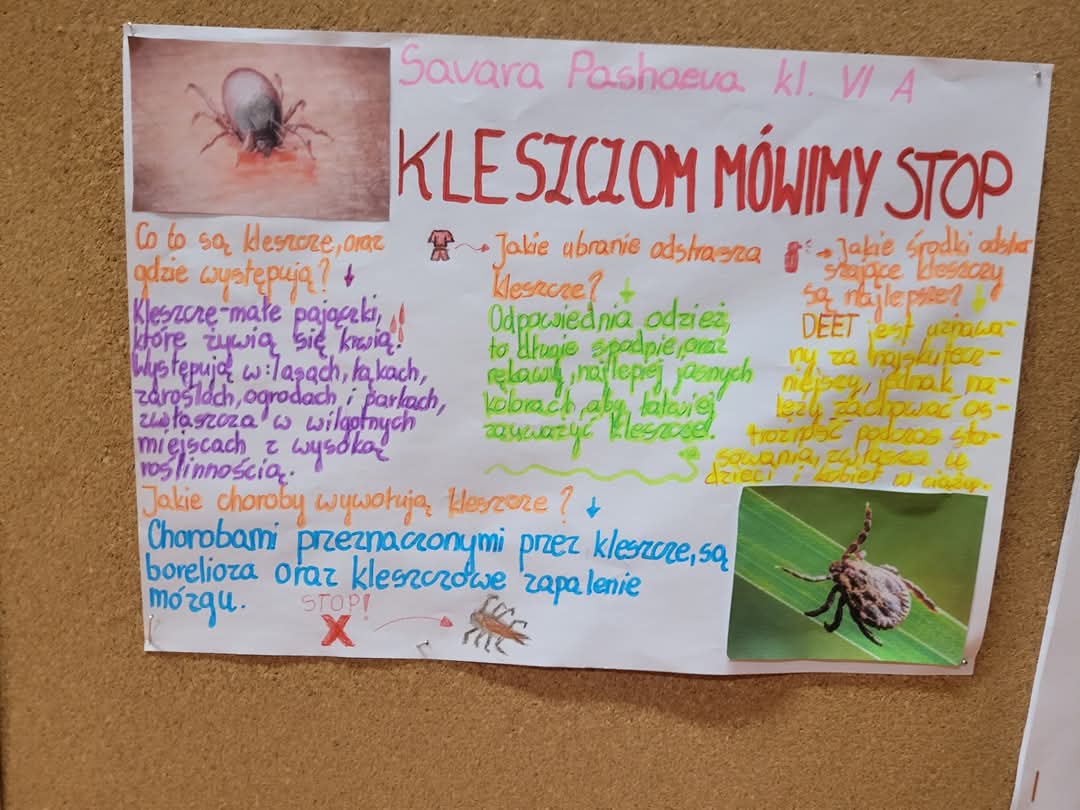 Savara Pashaeva kl. VI A
KLESZCZOM MÓWIMY STOP
Co to są kleszcze, oraz
gdzie występują?
Kleszcze-małe pajączki,
które żywią się krwią.
Występują w: lasach, łąkach,
zaroślach, ogrodach i parkach,
zwłaszcza w wilgotnych
miejscach z wysoką
roślinnością.
Jakie ubranie odstrasza
kleszcze?
Odpowiednia odzież,
to długie spodnie, oraz
rękawy, najlepiej jasnych
kolorach, aby łatwiej
zauważyć kleszcze!
Jakie środki odstra
szające kleszczy
są najlepsze?
DEET jest uznawa-
ny za najskutecz-
niejszy, jednak na-
leży zachować os-
trożność podczas sto-
sowania, zwłaszcza u
dzieci i kobiet w ciąży.
Jakie choroby wywołują kleszcze?
Chorobami przeznaczonymi przez kleszcze, są
borelioza oraz kleszczowe zapalenie
mózgu.
STOP!
X